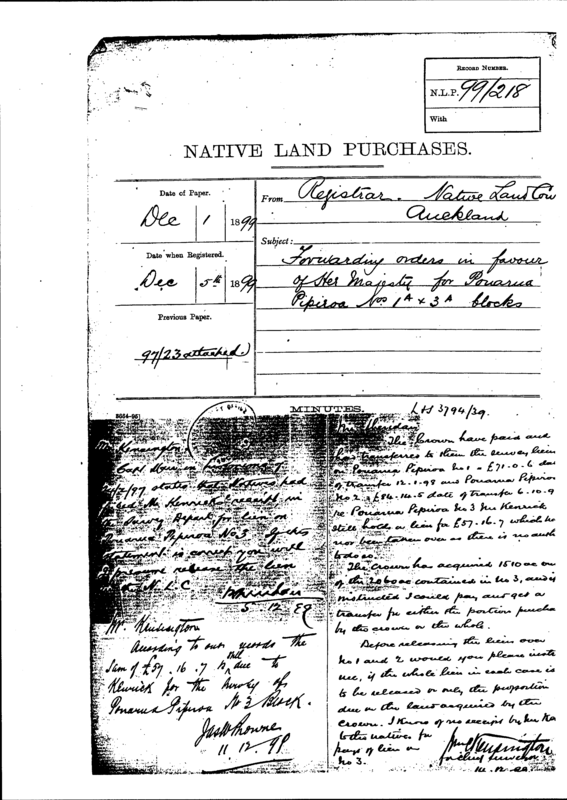 RECORD NUMBER.
N.L.P. 99/218
With
NATIVE LAND PURCHASES.
Date of Paper.
Dec 1 1899
Date when Registered.
Dec 5th 1899
Previous Paper.
97/23 attached.)
From Registrar. Native Land Cou
Auckland
Subject:
Forwarding orders in favour
of Her Majesty for Ponarua
Pipiroa Nos 1A & 3A blocks
MINUTES.
L&S 3794/39.
Mr Kensington
states that Natives had
Mr Kenrick receipt in
Survey Dept for lien on
Pipiroa No 3
statement is correct you will
please release the lien
N.L.C
5 12 99
Mr. Kensington
According to our records the
sum of £57. 16. 7 is still due to
Kenrick for the survey of
Ponarua Pipiroa No 3 Block.
11. 12. 99
Mr Sheridan
The Crown have paid and
has transferred to them the survey lien
on Ponarua Pipiroa No 1 - £71.0.6 da
of transfer 12.1.98 and Ponarua Pipiroa
No 2 £84.14.5 date of transfer 6.10.9
re Ponarua Pipiroa No 3 Mr Kenrick
still holds a lien for £57.16.7 which has
not been taken over as there is no auth
to do so.
The Crown has acquired 1510 ac on
of the 2060 ac contained in No 3, and
instructed I could pay and get a
transfer for either the portion purcha
by the crown or the whole.
Before releasing the liens over
No 1 and 2 would you please instr
me, if the whole lien in each case is
to be released or only the proportion
due on the land acquired by the
Crown. I know of no receipt by Mr Ke
to the natives for
paymt of lien on
No 3.
Kensington
for chief surveyor
14. 12. 99